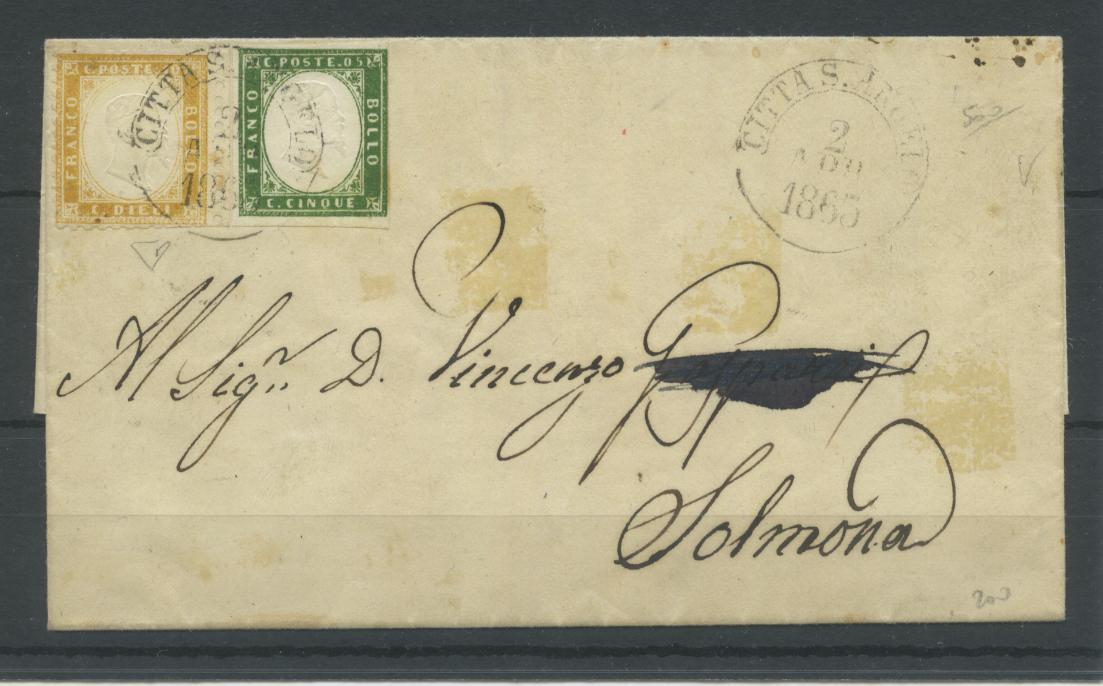 C. POSTE
FRANCO
BOLLO
C. DIECI
C. POSTE. 05
FRANCO
BOLLO
C. CINQUE
CITTA S.
CITTA S. ANGELO
2
1865
Al Sigr. D. Vincenzo
Solmona
200